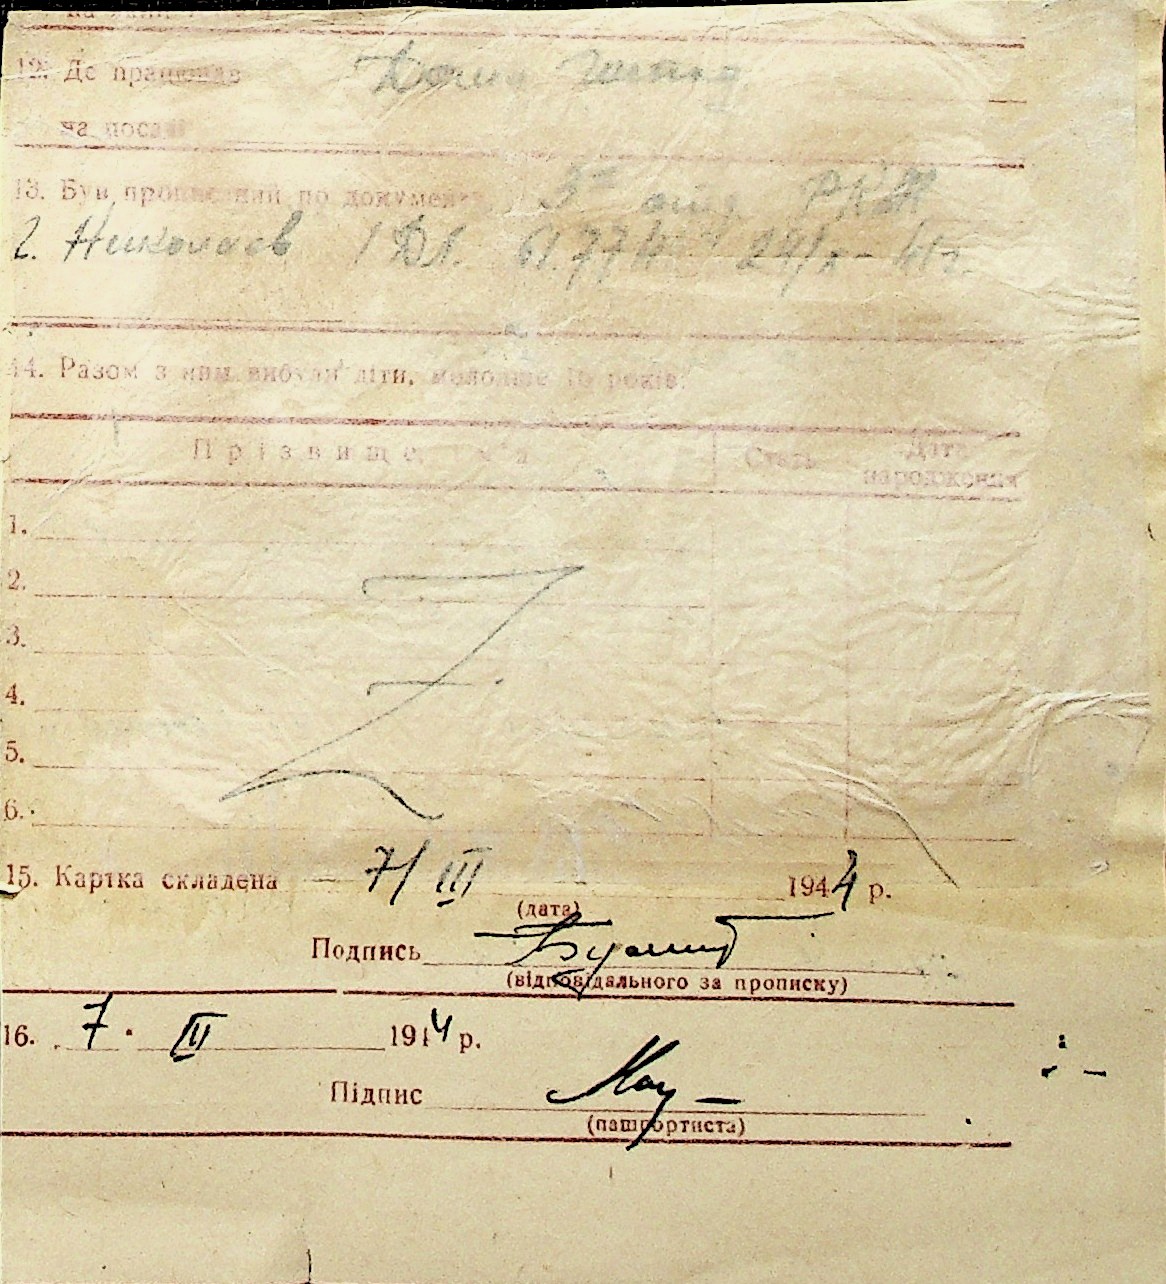 12. Де працював
на посаді
13. Був прописаний по документа 3 отд РКМ
г. Николаев 29/X - 41 г.
14. Разом з ним вибули діти, молодше 16 років:
Прізвище, ім'я Стать Дата народження
1.
2.
3.
4.
5.
6.
15. Картка складена 7/III 1944 р.
(дата)
Подпись
(відповідального за прописку)
16. 7. III 1944 р.
Підпис
(пашпортиста)